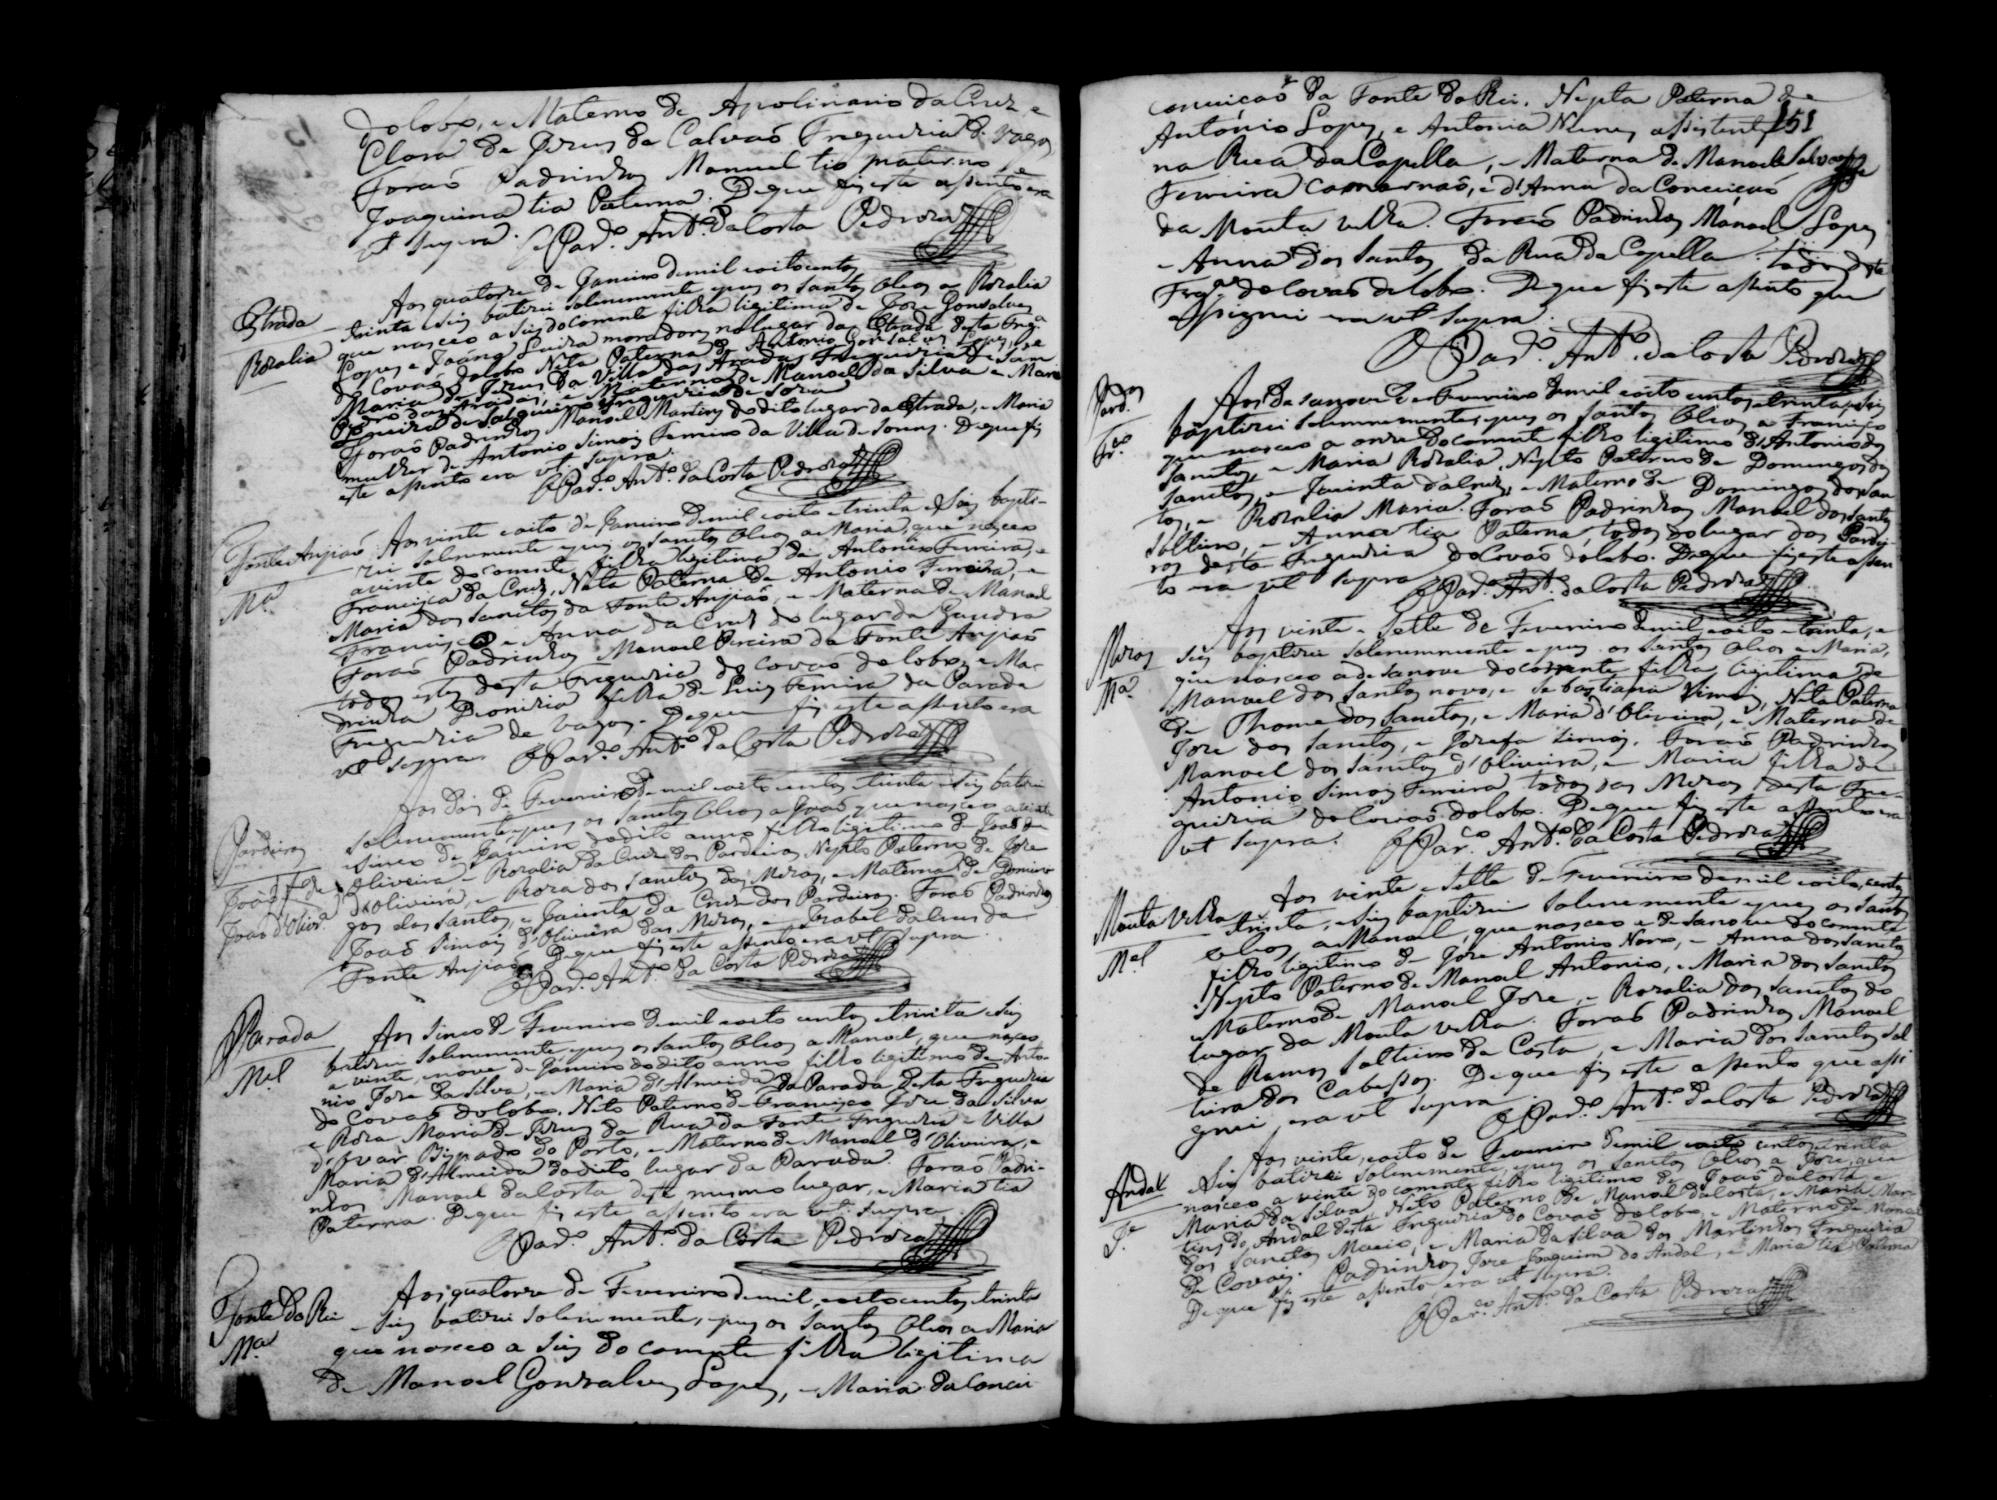 dolobo, e Materno de Apolinario da Cruz e
Clara de Jezus de Calvaõ Freguezia de Vagos
Foraõ Padrinhos Manuel tio materno, e
Joaquina tia Paterna. Deque fiz este assento era
ut supra. O Par.º Ant.º da Costa Pedroza
Estrada
Rozalia
Aos quatorze de Janeiro de mil eoito centos
trinta e seis batizei solenemente, e puz os santos Oleos a Rozalia
que nasceo a seis do corrente filha ligitima de Joze Gonsalves
Lopes, e Joanna Luiza moradores no lugar da Estrada desta Freg.ª
do Covaõ dolobo Neta Paterna de Antonio Gonsalves Lopes, e de
Maria de Jezus da Villa das Aradas Freguezia de Sam
Pedro das Aradas, e Materna de Manoel da Silva e Maria
de Salgueiro Freguezia de Soza
Foraõ Padrinhos Manoel Martins do dito lugar da Estrada, e Maria
mulher de Antonio Simois Ferreiro da Villa de Deque fiz
este assento era ut supra.
O Par.º Ant.º da Costa Pedroza
Fonte Anjiaõ
M.ª
Aos vinte eoito de Janeiro de mil eoito etrinta e seis bapti-
zei solenemente, epuz os santos Oleos a Maria, que nasceo
avinte do corrente filha legitima de Antonio Ferreira, e
Francisca da Cruz, Neta Paterna de Antonio Ferreira, e
Maria dos Sanctos da Fonte Anjiaõ, e Materna de Manoel
Francisco e Anna da Cruz do lugar da Gandra
Foraõ Padrinhos Manoel Pereira da Fonte Anjiaõ
todos estes desta Freguezia do Covaõ do lobo, e Ma-
drinha Dionizia filha de Luis Ferreira da Parada
Freguezia de Vagos. Deque fiz este assento era
ut supra. O Par.º Ant.º da Costa Pedroza
Pardeiros
Joaõ
Joaõ d'Oliv.ª
Aos dois de Fevereiro de mil eoito centos trinta e seis batizei
solenemente, epuz os Sanctos Oleos a Joaõ que nasceo a vinte
esinco de Janeiro dodito anno filho legitimo de Joaõ de
Oliveira e Rozalia da Cruz dos Pardeiros Nepto Paterno de Joze
d'Oliveira, e Roza dos Sanctos das Mezas, e Materno de Domin-
gos dos Santos, e Jacinta da Cruz dos Pardeiros. Foraõ Padrinhos
Joaõ Simois d'Oliveira das Mezas, e Izabel da Cruz da
Fonte Anjiaõ. Deque fiz este assento era ut supra.
O Par.º Ant.º da Costa Pedroza
Parada
M.el
Aos sinco de Fevereiro de mil eoito centos etrinta e seis
batizei solenemente, epuz os santos Oleos a Manoel, que nasceo
a vinte, e nove de Janeiro dodito anno filho ligitimo de Anto-
nio Joze da Silva, e Maria d'Almeida da Parada desta Freguezia
do Covaõ dolobo, Neto Paterno de Francisco Joze da Silva
e Roza Maria de Jezus da Rua da Fonte Freguezia e Villa
d'Ovar Bispado do Porto, e Materno de Manoel d'Oliveira, e
Maria d'Almeida dodito lugar da Parada. Foraõ Padri-
nhos Manoel da Costa deste mesmo lugar, e Maria tia
Paterna. Deque fiz este assento era ut supra.
O Par.º Ant.º da Costa Pedroza
Fonte do Rei
M.ª
Aos quatorze de Fevereiro de mil, eoito centos, etrinta
e seis batizei solenemente, epuz os santos Oleos a Maria
que nasceo a seis do corrente filha legitima
de Manoel Gonzalves Lopes, e Maria da Concei-
conceiçaõ da Fonte do Rei. Nepta Paterna de
António Lopes, e Antonia Nunes assistentes
151
na Rua da Capella, e Materna de Manoel
Ferreira e d'Anna da Conceiçaõ
da Mouta velha. Foraõ Padrinhos Manoel Lopes
e Anna dos Santos da Rua da Capella todos desta
Freg.ª do Covaõ do lobo. Deque fiz este assento que
assignei era ut supra.
O Par.º Ant.º da Costa Pedroza
Pard.os
Fr.co
Aos dezanove de Fevereiro de mil eoito centos etrinta, e seis
baptizei solemnemente, epuz os santos Oleos a Francisco
que nasceo a onze do corrente filho legitimo d'Antonio dos
Sanctos, e Maria Rozalia, Nepto Paterno de Domingos dos
Sanctos, e Jacinta da Cruz, e Materno de Domingos dos San
tos, e Rozalia Maria. Foraõ Padrinhos Manoel dos Santos
solteiro, e Anna tia Paterna, todos do lugar dos Pardei-
ros desta Freguezia do Covaõ dolobo. Deque fiz este assen
to era ut supra O Par.º Ant.º da Costa Pedroza
Mezas
M.ª
Aos vinte e sette de Fevereiro de mil eoito etrinta, e
seis baptizei solemnemente e puz os santos Oleos a Maria,
que nasceo adezanove do corrente filha legitima de
Manoel dos Santos novo, e Sebastiana Simois, Neta Paterna
de Thome dos Sanctos, e Maria d'Oliveira, e Materna de
Joze dos Sanctos, e Jozefa Simois. Foraõ Padrinhos
Manoel dos Sanctos d'Oliveira, e Maria filha de
Antonio Simois Ferreira, todos das Mezas desta Fre-
guezia do Covaõ dolobo. Deque fiz este assento era
ut supra. O Par.co Ant.º da Costa Pedroza
Mouta Velha
M.el
Aos vinte e sette de Fevereiro de mil eoito centos
etrinta, e seis baptizei solemnemente epuz os santos
oleos, a Manoel, que nasceo a dezanove do corrente
filho legitimo de Joze Antonio Novo, e Anna dos Sanctos
Nepto Paterno de Manoel Antonio, e Maria dos Sanctos
e Materno de Manoel Joze, e Rozalia dos Sanctos do
lugar da Mouta velha. Foraõ Padrinhos Manoel
de Ramos solteiro da Costa, e Maria dos Sanctos sol
teira dos Cabessos. Deque fiz este assento que assi
gnei, era ut supra. O Par.º Ant.º da Costa Pedroza
Andal
J.e
Aos vinte, eoito de Fevereiro de mil eoito centos etrinta
e seis batizei solemnemente, epuz os Sanctos Oleos a Joze, que
nasceo a vinte do corrente filho ligitimo de Joaõ da Costa e
Maria da Silva, Neto Paterno de Manoel da Costa, e Maria Mar-
tins do Andal desta Freguezia do Covaõ do lobo, e Materno de Manoel
dos Sanctos e Maria da Silva dos Martinhos Freguezia
de Covois. Padrinhos Joze Joaquim do Andal, e Maria tia Paterna
Deque fiz este assento, era ut supra.
O Par.co Ant.º da Costa Pedroza